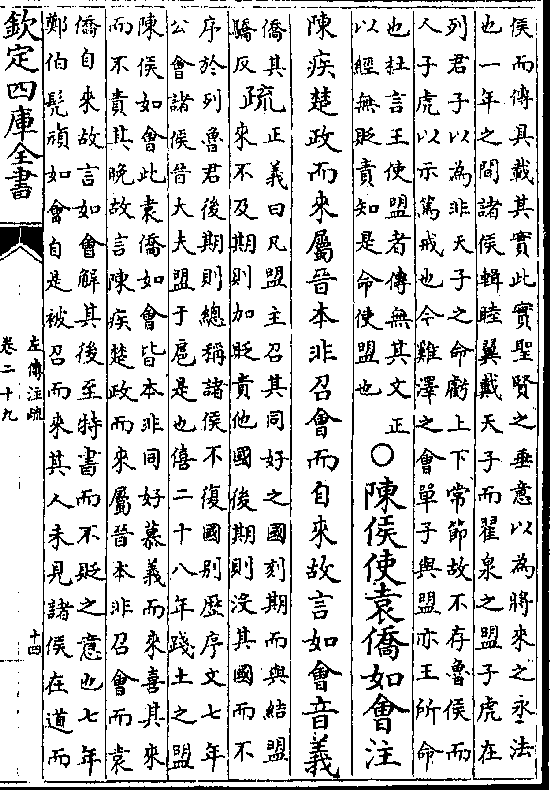 侯而傳具載其實此實聖賢之垂意以為將來之永法
也一年之間諸侯輯睦翼戴天子而翟泉之盟子虎在
列君子以為非天子之命虧上下常節故不存魯侯而
人子虎以示篤戒也今雞澤之會單子與盟亦王所命
也杜言王使盟者傳無其文正
以經無貶責知是命使盟也
○陳侯使袁僑如會注
陳疾楚政而來屬晉本非召會而自來故言如會音義
僑其
驕反
疏
正義曰凡盟主召其同好之國刻期而與結盟
來不及期則加貶責他國後期則沒其國而不
序於列魯君後期則總稱諸侯不復國別歷序文七年
公會諸侯晉大夫盟于扈是也僖二十八年踐土之盟
陳侯如會此袁僑如會皆本非同好慕義而來喜其來
而不責其晚故言陳疾楚政而來屬晉本非召會而袁
僑自來故言如會解其後至特書而不貶之意也七年
鄭伯髠頑如會自是被召而來其人未見諸侯在道而
欽定四庫全書
左傳注疏
卷二十九
十四